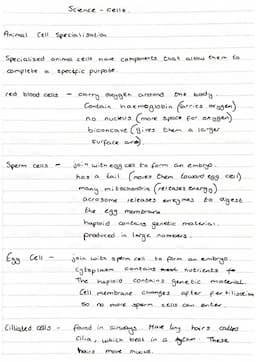 Science - cells.
Animal Cell Specialisation
Specialised animal cells have components that allow them to
complete a specific purpose.
red blood cells - carry oxygen around the body.
Contain haemoglobin (carries oxygen)
no nucleus (more space for oxygen)
biconcave (gives them a larger
surface area).
Sperm cells - join with egg cell to form an embryo.
has a tail (moves them toward egg cell)
many mitochondria (releases energy)
acrosome releases enzymes to digest
the egg membrane
haploid contains genetic material.
produced in large numbers.
Egg Cell - join with sperm cell to form an embryo.
Cytoplasm contains nutrients
The haploid contains genetic material.
Cell membrane changes after fertilisation
so no more sperm cells can enter.
Cilliated cells - found in airways. Have tiny hairs called
cilia, which beat in a rythm. These
hairs move mucus.